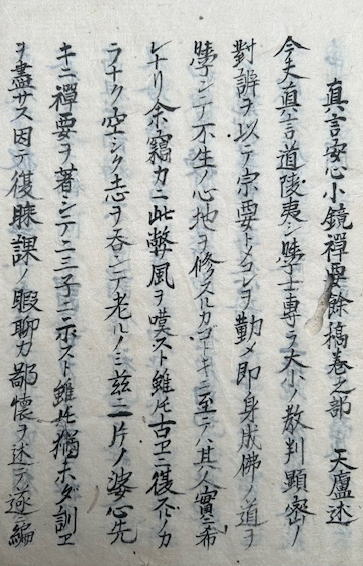 真言安心小鏡禪要餘稿卷之部　天廬述
今夫真言道陵夷シ學士專ラ大小ノ教判顯密ノ
對辨ヲ以テ宗要トメコレヲ勤メ即身成佛ノ道ヲ
學シテ不生ノ心地ヲ修スルカゴーキニ至テハ其ノ人實ニ希
レナリ余竊カニ此弊風ヲ嘆スト雖𪜈古ヱニ復スルノカ
ラナク空シク志ヲ吞シテ老ルノミ茲ニ一片ノ婆心先
キニ禪要ヲ著シテ二三子ニ示スト雖𪜈猶ホダ訓ヱ
ヲ盡サス因テ復賸課ノ暇聊カ鄙懷ヲ述テ逐編